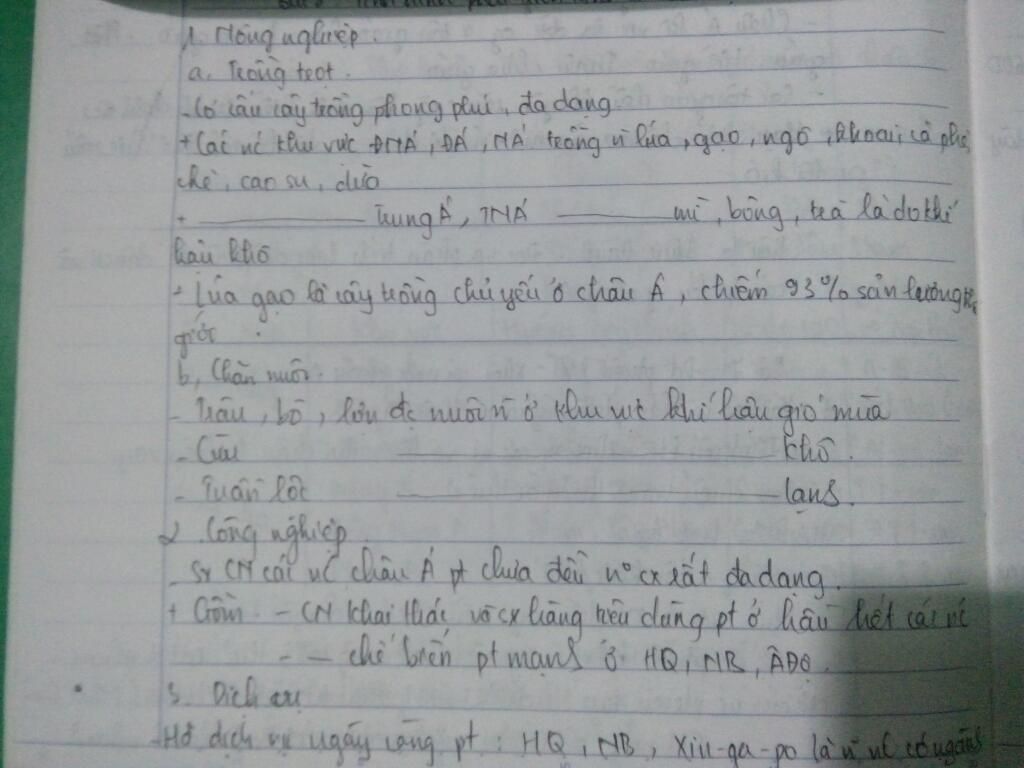 1. Nông nghiệp.
a. Trồng trọt.
- Cơ cấu cây trồng phong phú, đa dạng
+ Các nc khu vực ĐNÁ, ĐÁ, NÁ trồng n lúa, gạo, ngô, khoai, cà phê,
chè, cao su, dừa
+ ———— Trung Á, TNÁ ———— mì, bông, trà là do khí
hậu khô
- Lúa gạo là cây trồng chủ yếu ở châu Á, chiếm 93% sản lượng thế
giới.
b, Chăn nuôi
- Trâu, bò, lợn đc nuôi n ở khu vực khí hậu gió mùa
- Cừu ———— khô.
- Tuần lộc ———— lạnh.
2 Công nghiệp
- Sx CN các nc châu Á pt chưa đều cx rất đa dạng.
+ Gồm - CN khai thác và sx hàng tiêu dùng pt ở hầu hết các nc
- — chế biến pt mạnh ở HQ, NB, ÂĐộ.
3. Dịch vụ
- Hđ dịch vụ ngày càng pt: HQ, NB, Xin-ga-po là n nc có ngành